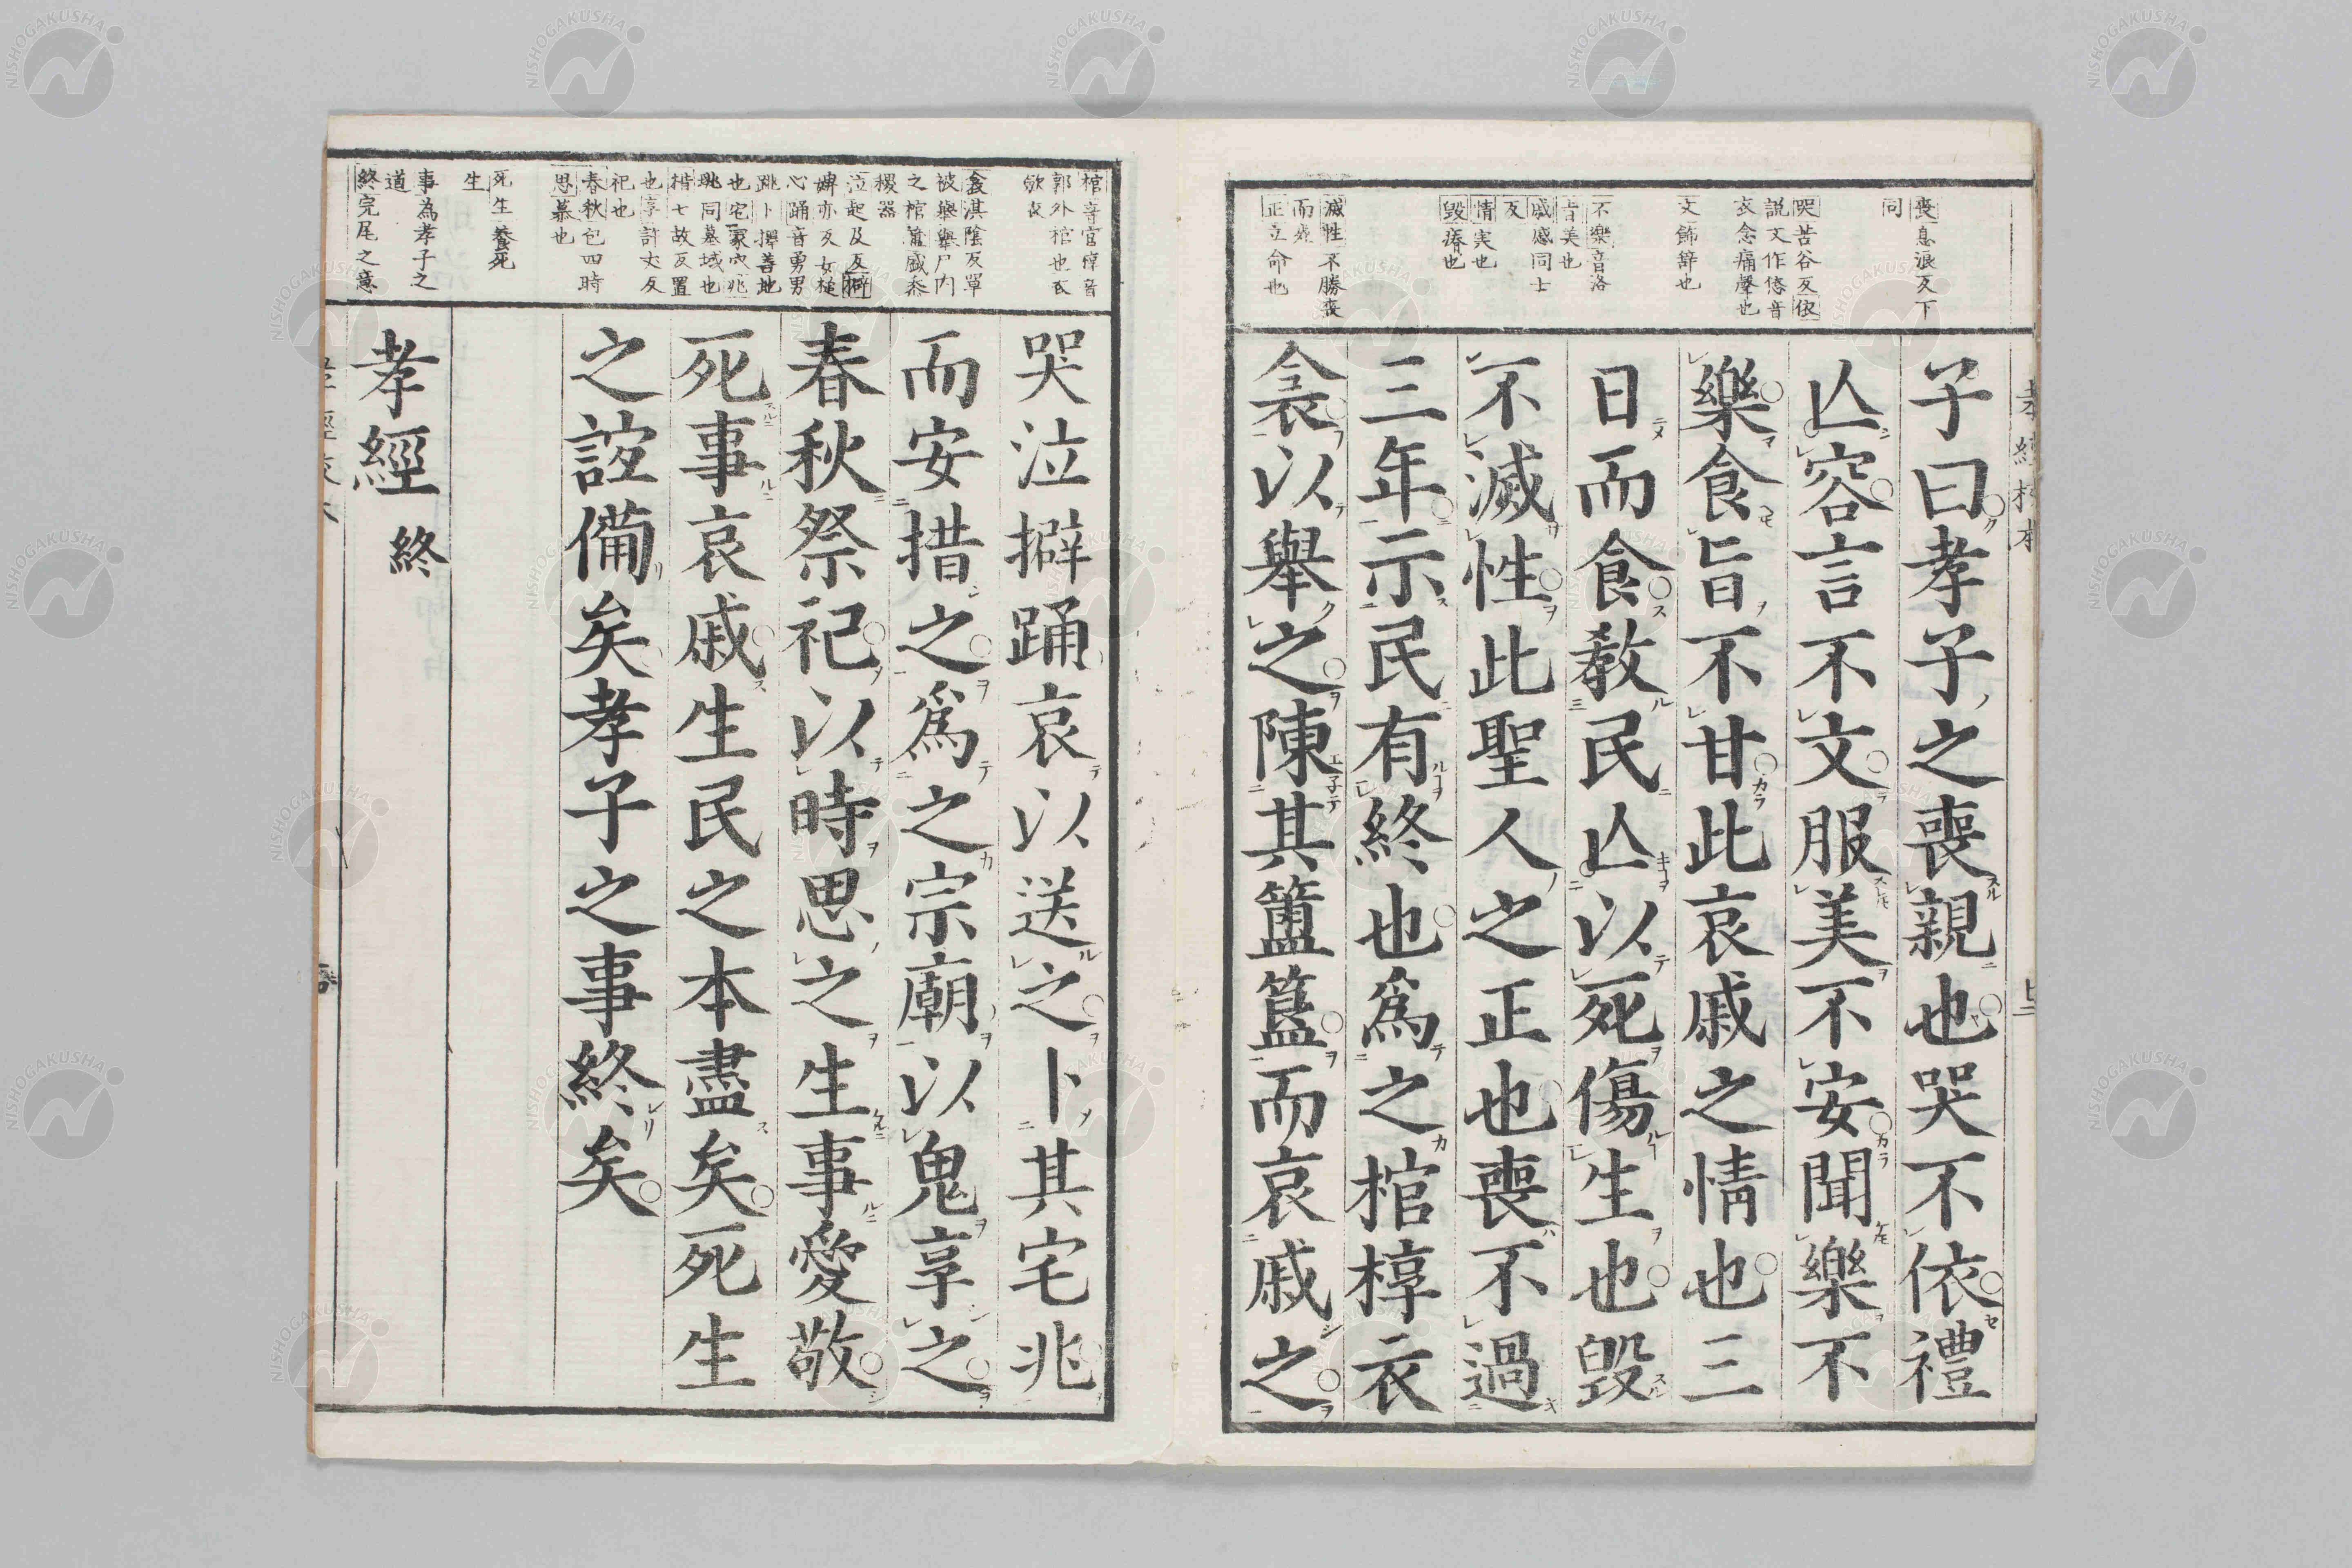 喪息浪反下
同
哭苦谷反依
説文作㥋音
哀念痛聲也
文飾辞也
不樂音洛
旨美也
戚慼同士
反
情実也
毀瘠也
滅性不勝喪
而死
正立命也
子曰孝子之喪親也哭不依禮
亾容言不文服美不安聞樂不
樂食旨不甘此哀戚之情也三
日而食教民亾以死傷生也毀
不滅性此聖人之正也喪不過
三年示民有終也爲之棺椁衣
衾以舉之陳其簠簋而哀戚之
棺音官椁音
郭外棺也衣
歛衣
衾淇陰反單
被舉舉尸内
之棺簠盛黍
稷器
泣起及反擗
婢亦反女槌
心踊音勇男
跳卜擇善地
也宅冢穴兆
珧同墓域也
措七故反置
也享許丈反
祀也
春秋包四時
思慕也
死生養死
生
事為孝子之
道
終完尾之意
哭泣擗踊哀以送之卜其宅兆
而安措之爲之宗廟以鬼享之
春秋祭祀以時思之生事愛敬
死事哀戚生民之本盡矣死生
之誼備矣孝子之事終矣
孝經終
NISHOGAKUSHA